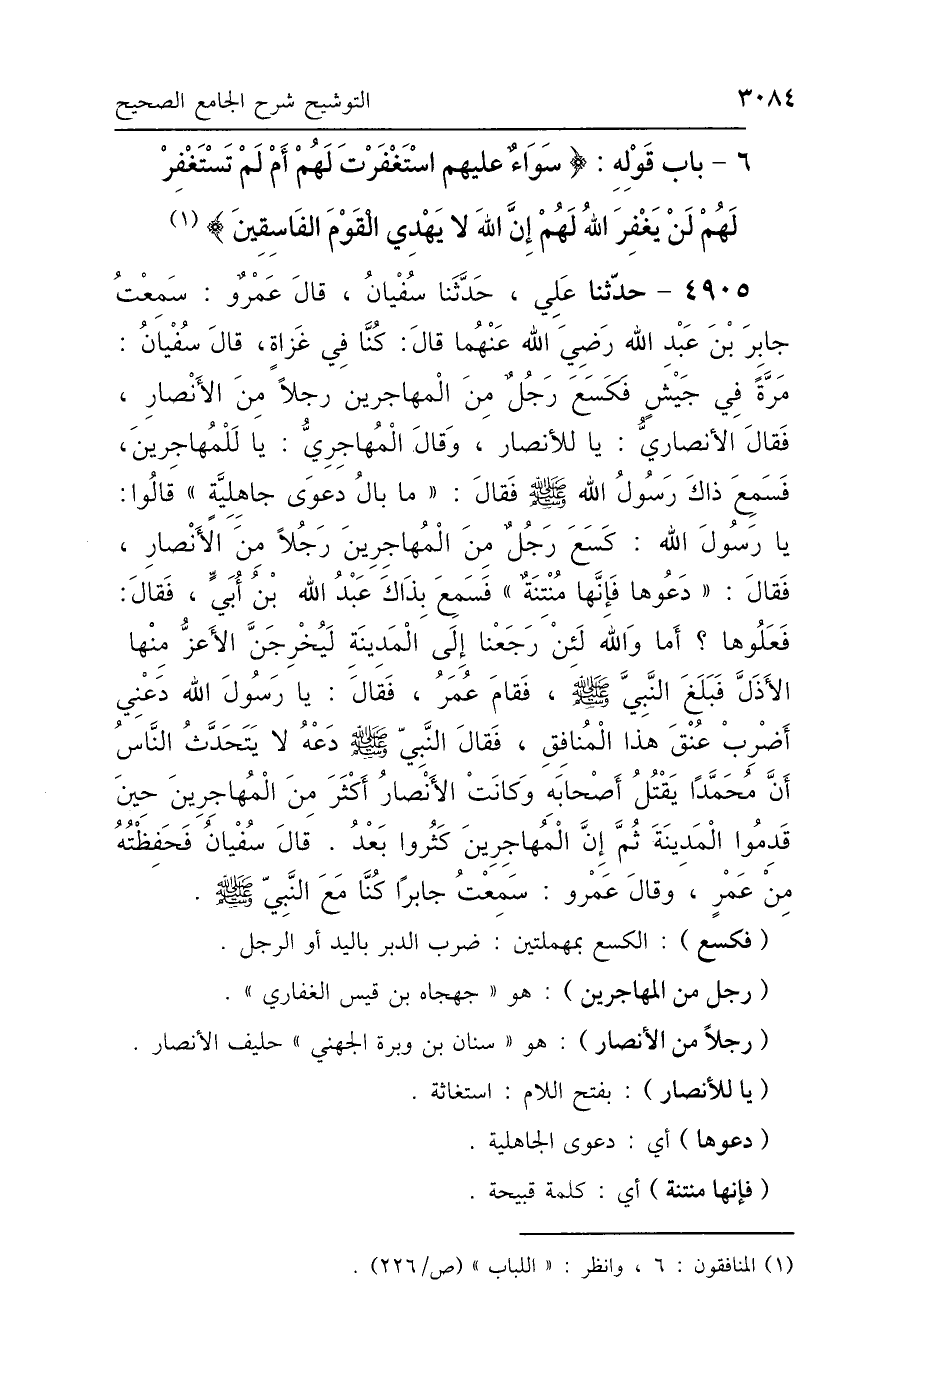 ٣٠٨٤ التوشيح شرح الجامع الصحيح
٦ - باب قَوْلِهِ : ﴿ سَوَاءٌ عليهم اسْتَغْفَرْتَ لَهُمْ أَمْ لَمْ تَسْتَغْفِرْ
لَهُمْ لَنْ يَغْفِرَ اللهُ لَهُمْ إِنَّ اللهَ لا يَهْدِي الْقَوْمَ الفَاسِقِينَ ﴾ (١)
٤٩٠٥ - حدّثنا عَلِي ، حَدَّثَنا سُفْيانُ ، قالَ عَمْرٌو : سَمِعْتُ
جابِرَ بْنَ عَبْدِ الله رَضِيَ الله عَنْهُما قالَ: كُنَّا فِي غَزاةٍ، قالَ سُفْيانُ :
مَرَّةً فِي جَيْشٍ فَكَسَعَ رَجُلٌ مِنَ الْمهاجرين رجلاً مِنَ الأَنْصارِ ،
فَقالَ الأنصاريُّ : يا للأنصار ، وَقالَ الْمُهاجِرِيُّ : يا لَلْمُهاجِرِينَ،
فَسَمِعَ ذاكَ رَسُولُ الله ﷺ فَقالَ : « ما بالُ دعوَى جاهليَّةٍ » قالُوا:
يا رَسُولَ الله : كَسَعَ رَجُلٌ مِنَ الْمُهاجِرِينَ رَجُلاً مِنَ الأَنْصارِ ،
فَقالَ : « دَعُوها فَإِنَّها مُنْتِنَةٌ » فَسَمِعَ بِذَاكَ عَبْدُ الله بْنُ أُبَيٍّ ، فَقالَ:
فَعَلُوها ؟ أما وَالله لَئِنْ رَجَعْنا إِلَى الْمَدِينَةِ لَيُخْرِجَنَّ الأعزُّ مِنْها
الأَذَلَّ فَبَلَغَ النَّبِيَّ ﷺ ، فَقامَ عُمَرُ ، فَقالَ : يا رَسُولَ الله دَعْنِي
أَضْرِبْ عُنْقَ هذا الْمُنافِقِ ، فَقالَ النَّبِيّ ﷺ دَعْهُ لا يَتَحَدَّثُ النَّاسُ
أَنَّ مُحَمَّدًا يَقْتُلُ أَصْحابَه وَكَانَتْ الأَنْصارُ أَكْثَرَ مِنَ الْمُهاجِرِينَ حِينَ
قَدِمُوا الْمَدِينَةَ ثُمَّ إِنَّ الْمُهاجِرِينَ كَثُروا بَعْدُ . قالَ سُفْيانُ فَحَفِظْتُهُ
مِنْ عَمْرٍ ، وقالَ عَمْرو : سَمِعْتُ جابرًا كُنَّا مَعَ النَّبِيّ ﷺ .
( فكسع ) : الكسع بمهملتين : ضرب الدبر باليد أو الرجل .
( رجل من المهاجرين ) : هو « جهجاه بن قيس الغفاري » .
( رجلاً من الأنصار ) : هو « سنان بن وبرة الجهني » حليف الأنصار .
( يا للأنصار ) : بفتح اللام : استغاثة .
( دعوها ) أي : دعوى الجاهلية .
( فإنها منتنة ) أي : كلمة قبيحة .
(١) المنافقون : ٦ ، وانظر : « اللباب » (ص/٢٢٦) .